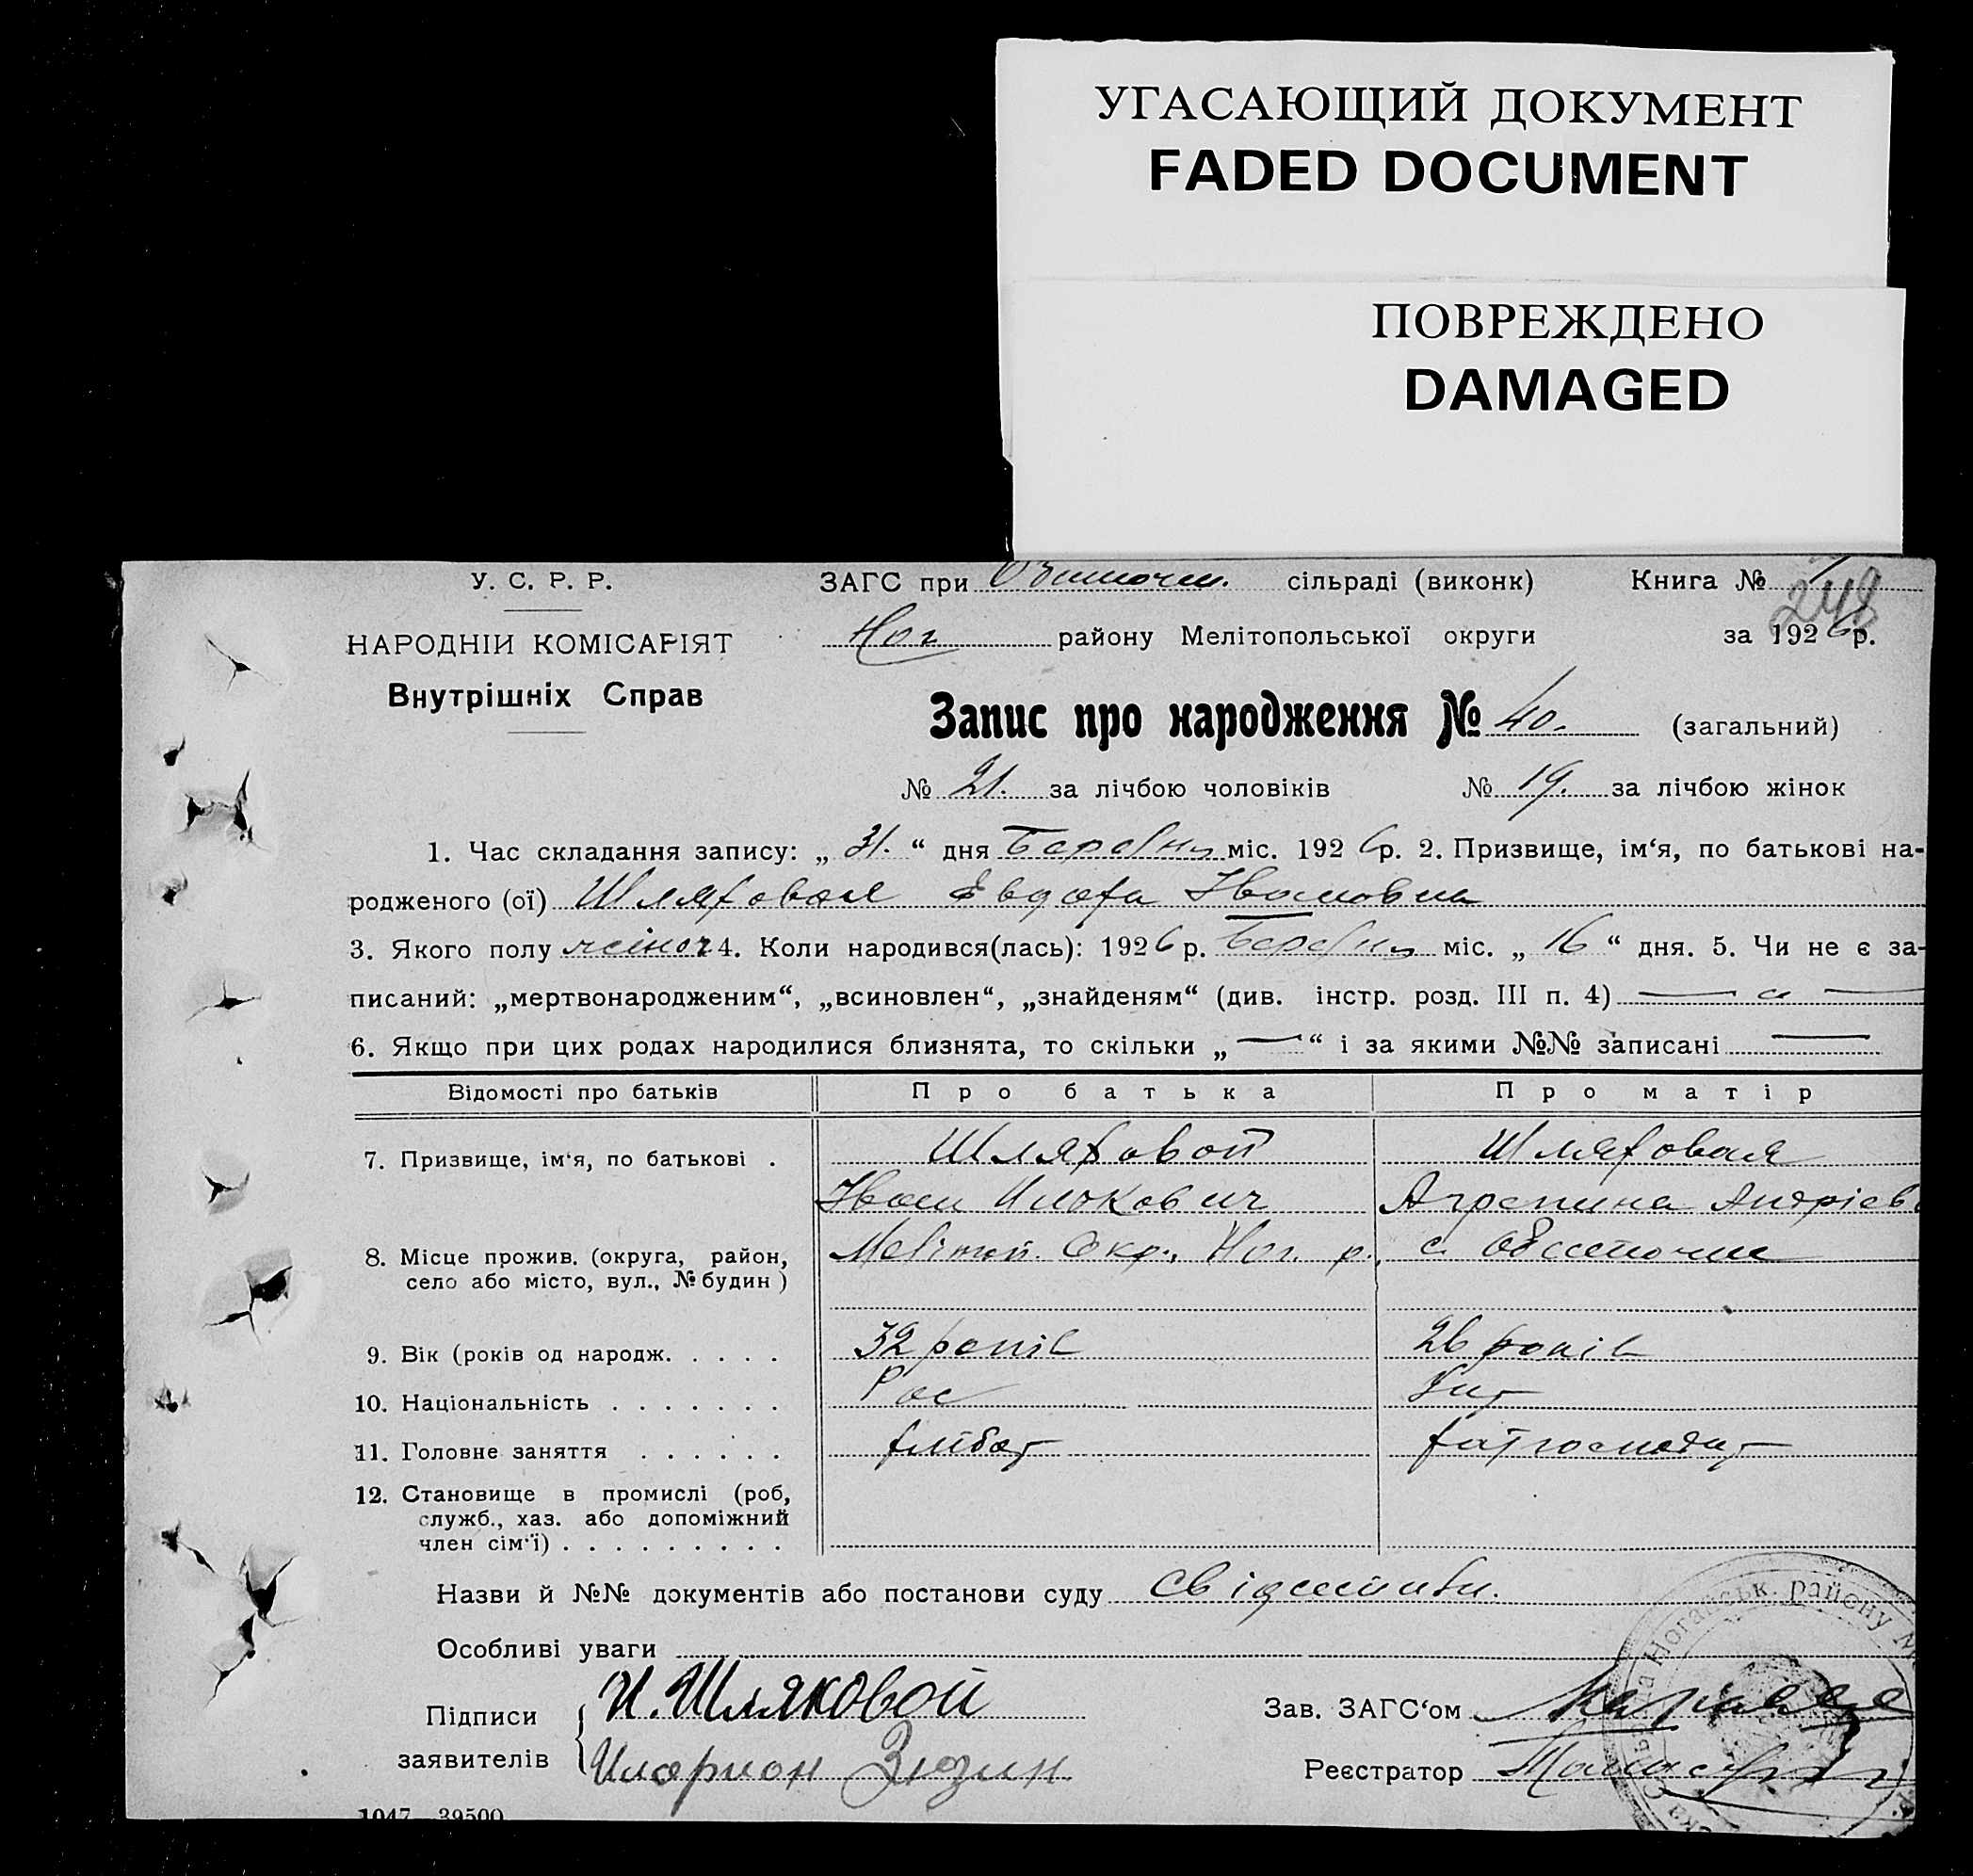 УГАСАЮЩИЙ ДОКУМЕНТ
FADED DOCUMENT
ПОВРЕЖДЕНО
DAMAGED
У. С. Р. Р. ЗАГС при сільраді (виконк) Книга № 1
248
НАРОДНІЙ КОМІСАРІЯТ Ног району Мелітопольської округи за 1926 р.
Внутрішніх Справ
Запис про народження № 40. (загальний)
№ 21. за лічбою чоловіків № 19. за лічбою жінок
1. Час складання запису: „ 31. “ дня Березня міс. 1926 р. 2. Призвище, ім‘я, по батькові на-
родженого (ої) Шляховая Евдоха Івановна
3. Якого полу жіноч 4. Коли народився(лась): 1926 р. Березня міс. „ 16 “ дня. 5. Чи не є за-
писаний: „мертвонародженим“, „всиновлен“, „знайденям“ (див. інстр. розд. III п. 4)
6. Якщо при цих родах народилися близнята, то скільки „ — “ і за якими №№ записані —
Відомості про батьків Про батька Про матір
7. Призвище, ім‘я, по батькові . Шляховой Шляховая
Іван Агрепина Андріев
8. Місце прожив. (округа, район, Меліт. Окр., Ног. р. с.
село або місто, вул., № будин)
9. Вік (років од народж. . . . . 32 років 26 років
10. Національність . . . . . . . Рос Укр
11. Головне заняття . . . . . . хлібор хатгосподар
12. Становище в промислі (роб,
служб., хаз. або допоміжний
член сім‘ї) . . . . . . . . .
Назви й №№ документів або постанови суду свідетит.
Особливі уваги
Підписи И. Шляковой Зав. ЗАГС‘ом
заявителів Иларион Зюзин Реєстратор
Ногайськ. району
1047—39500